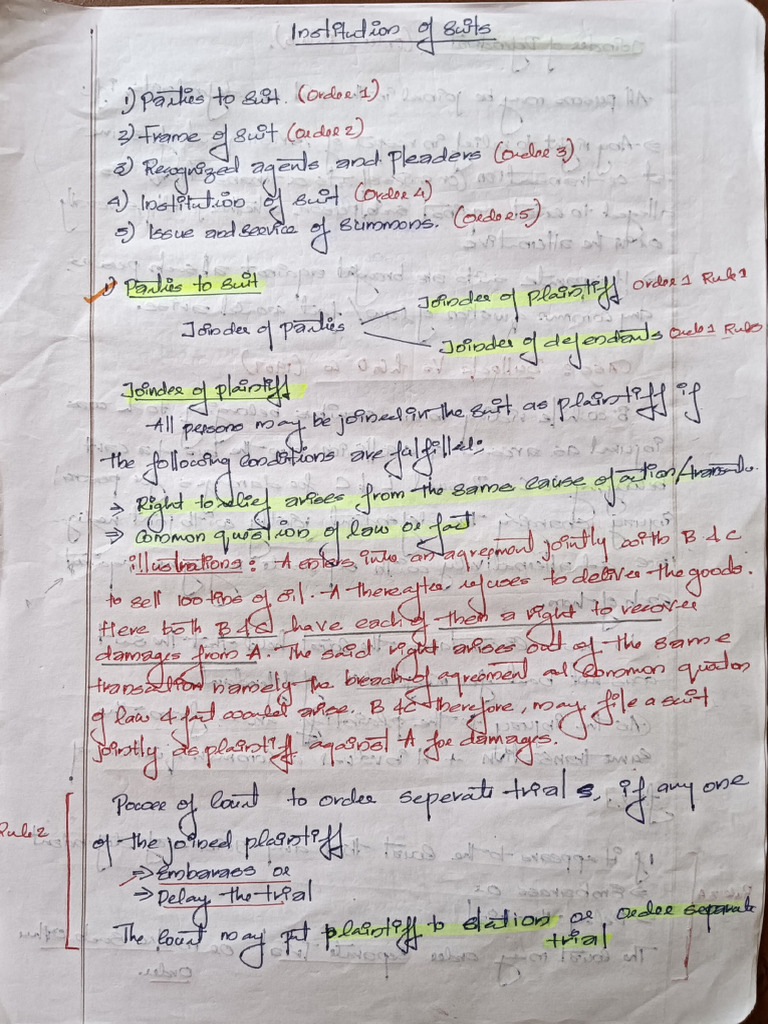 Institution of Suits
1) Parties to Suit. (Order 1)
2) Frame of Suit (Order 2)
3) Recognized agents and Pleaders (Order 3)
4) Institution of suit (Order 4)
5) Issue and Service of Summons. (Order 5)
1) Parties to Suit
Joinder of Plaintiff Order 1 Rule 1
Joinder of Parties
Joinder of defendants Order 1 Rule
Joinder of plaintiff
- All persons may be joined in the suit as plaintiff if
the following conditions are fulfilled:
→ Right to relief arises from the same cause of action/
⇒ Common question of law or fact
illustrations: A enters into an agreement jointly with B & C
to sell 100 tins of oil. A thereafter refuses to deliver the goods.
Here both B & C have each of them a right to recover
damages from A. The said right arises out of the same
transaction namely the breach of agreement and common
of law & fact would arise. B & C therefore, may file a suit
jointly as plaintiff against A for damages.
Power of Court to order seperate trials, if any one
Rule 2
of the joined plaintiff
→ Embarass or
→ Delay the trial
The Court may put plaintiff to elation or order separate
trial